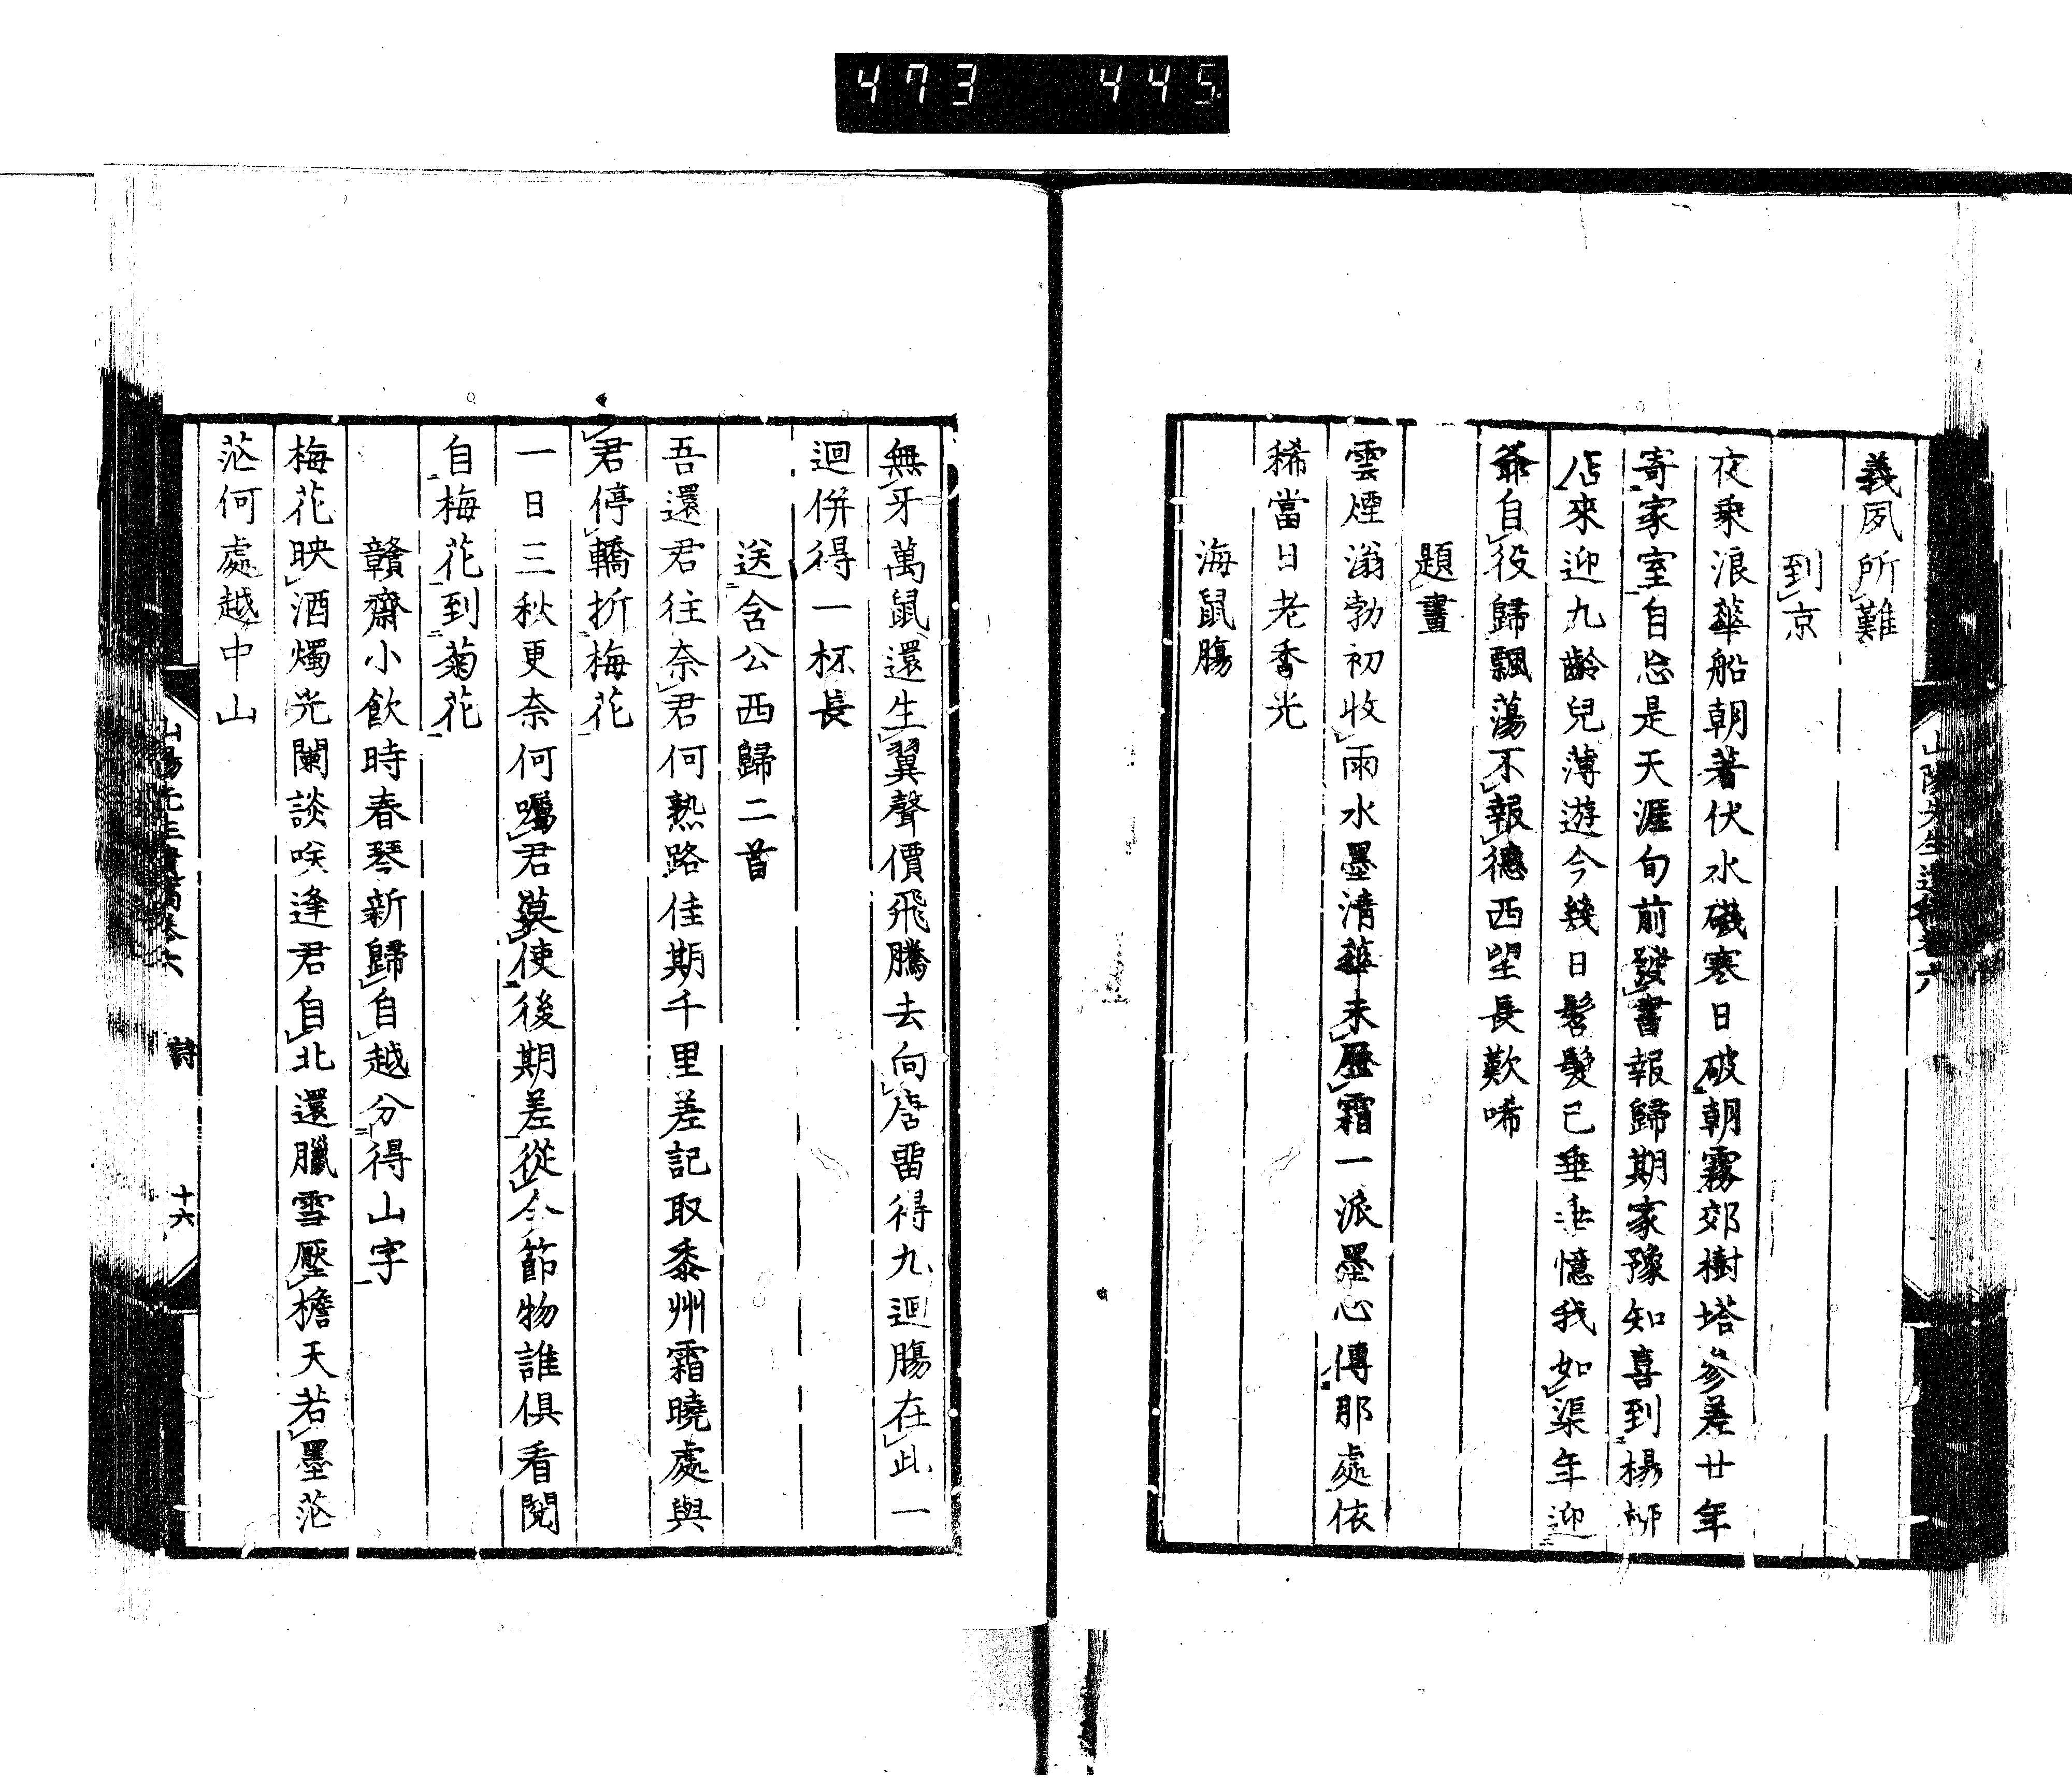 473 445
義夙所難
到京
夜乘浪華船朝著伏水磯寒日破朝霧郊樹塔參差廿年
寄家室自忘是天涯旬前發書報歸期家豫知喜到楊柳
店來迎九齡兒薄遊今幾日髫髮已垂垂憶我如渠年迎
爺自役歸飄蕩不報德西望長歎唏
題畫
雲煙滃勃初收雨水墨清華未歷霜一派墨心傳那處依
稀當日老香光
海鼠腸
無牙萬鼠還生翼聲價飛騰去向店畱得九迴腸在此一
迴併得一杯長
送含公西歸二首
吾還君往奈君何熟路佳期千里差記取黍州霜曉處與
君停轎折梅花
一日三秋更奈何囑君莫使後期差從今節物誰俱看閱
自梅花到菊花
贛齋小飲時春琴新歸自越分得山字
梅花映酒燭光闌談咲逢君自北還臘雪壓檐天若墨茫
茫何處越中山
山陽先生遺稿卷六
詩
十六